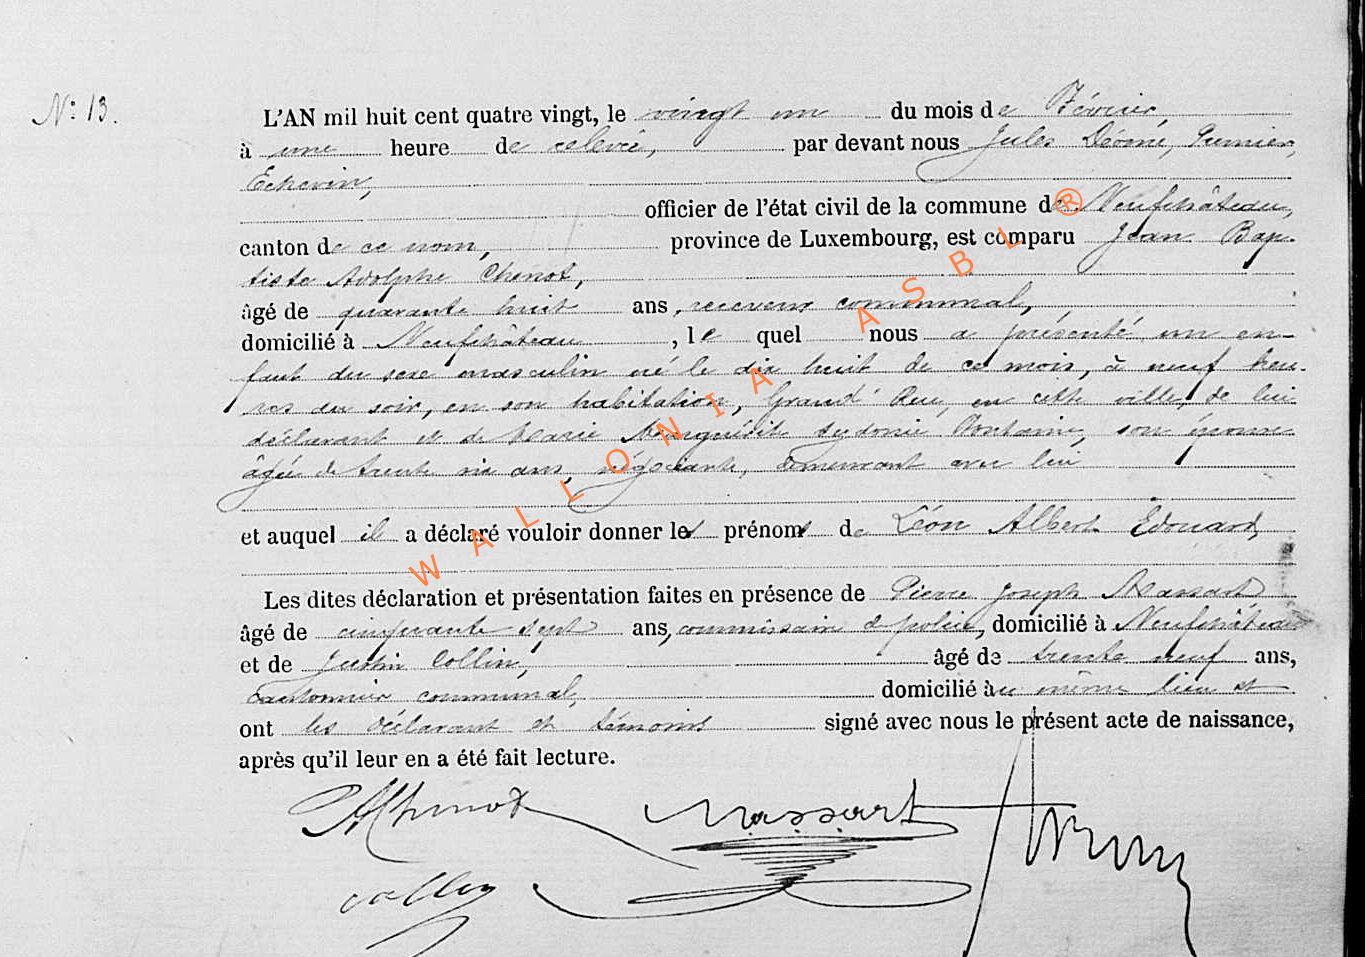 N° 13.
L'AN mil huit cent quatre vingt, le vingt un du mois de Février,
à une heure de relevée, par devant nous Jules Premier
Echevin,
officier de l'état civil de la commune de Neufchâteau,
canton de ce nom, province de Luxembourg, est comparu Jean Bap-
tiste Adolphe Chenot,
âgé de quarante huit ans, receveur communal,
domicilié à Neufchâteau, lequel nous a présenté un en-
fant du sexe masculin né le dix huit de ce mois, à neuf heu-
res du soir, en son habitation, Grand' Rue, en cette ville, de lui
déclarant et de Marie Marguerite Sydonie Fontaine, son épouse
âgée de trente six ans, négociante, demeurant avec lui
et auquel il a déclaré vouloir donner les prénoms de Léon Albert Edouard,
Les dites déclaration et présentation faites en présence de Pierre Joseph Massart
âgé de cinquante sept ans, commissaire de police, domicilié à Neufchâteau
et de Justin Collin, âgé de trente neuf ans,
cantonnier communal, domicilié au même lieu et
ont les déclarant et témoins signé avec nous le présent acte de naissance,
après qu'il leur en a été fait lecture.
AChenot Massart
Collin
WALLONIA ASBL ®